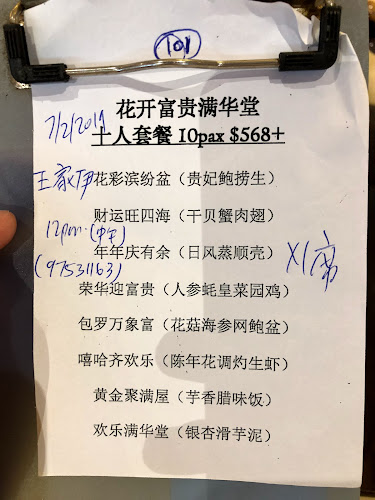 101
花开富贵满华堂
7/2/2019
十人套餐 10pax $568+
花彩滨纷盆（贵妃鲍捞生）
财运旺四海（干贝蟹肉翅）
12pm (中午)
年年庆有余（日风蒸顺壳）
(97531163)
X1席
荣华迎富贵（人参蚝皇菜园鸡）
包罗万象富（花菇海参网鲍盆）
嘻哈齐欢乐（陈年花调灼生虾）
黄金聚满屋（芋香腊味饭）
欢乐满华堂（银杏滑芋泥）